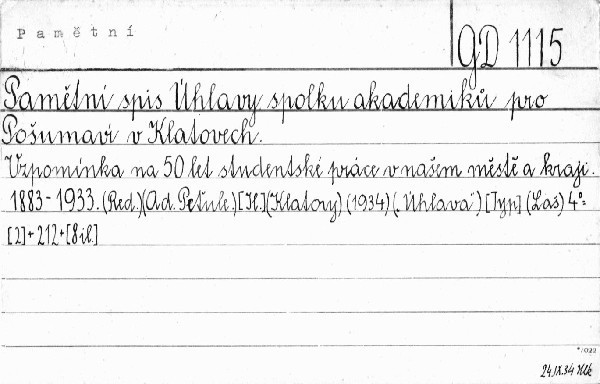 Pamětní
GD 1115
Pamětní spis Úhlavy spolku akademiků pro
Pošumaví v Klatovech.
Vzpomínka na 50 let studentské práce v našem městě a kraji.
1883-1933. (Red.) (Ad. Peťule.) [Il.] (Klatovy) (1934) („Úhlava") [Typ] (Laš) 4°=
[2]+212+[8il.]
24.IX.34